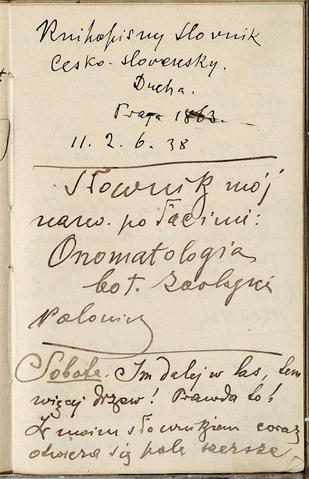 Knihopisny slovnik
česko-slovensky.
Ducha.
Praga 1863.
11. 2. 6. 38
Słownik mój
nazw. po łacinie:
Onomatologia
bot. zoologic
Polonica
Sobota. Im dalej w las, tem
więcej drzew! Prawda to!
Z moim słownikiem coraz
otwiera się pole szersze